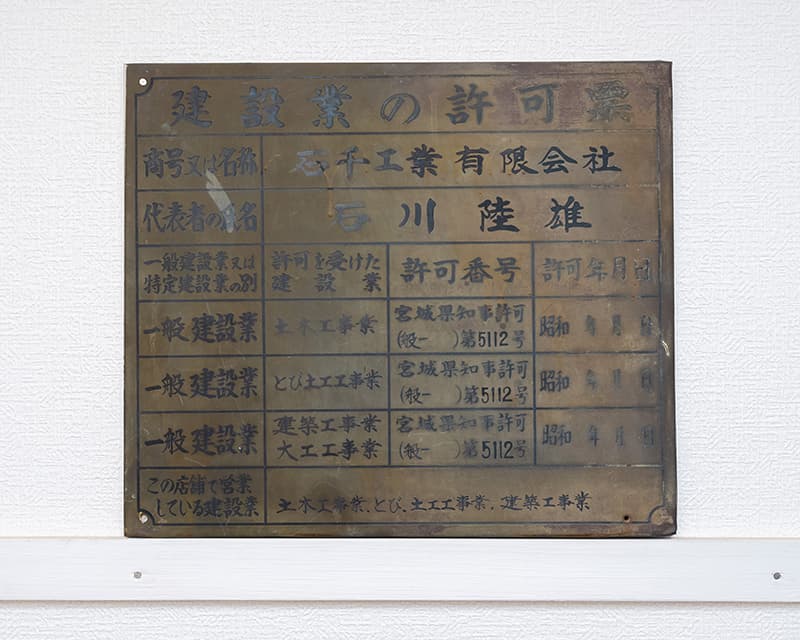 建設業の許可票
商号又は名称 石千工業有限会社
代表者の氏名 石川陸雄
一般建設業又は
特定建設業の別
許可を受けた
建設業
許可番号
許可年月日
一般建設業
土木工事業
宮城県知事許可
(般- )第5112号
昭和 年 月 日
一般建設業
とび土工工事業
宮城県知事許可
(般- )第5112号
昭和 年 月 日
一般建設業
建築工事業
大工工事業
宮城県知事許可
(般- )第5112号
昭和 年 月 日
この店舗で営業
している建設業
土木工事業.とび.土工工事業.建築工事業